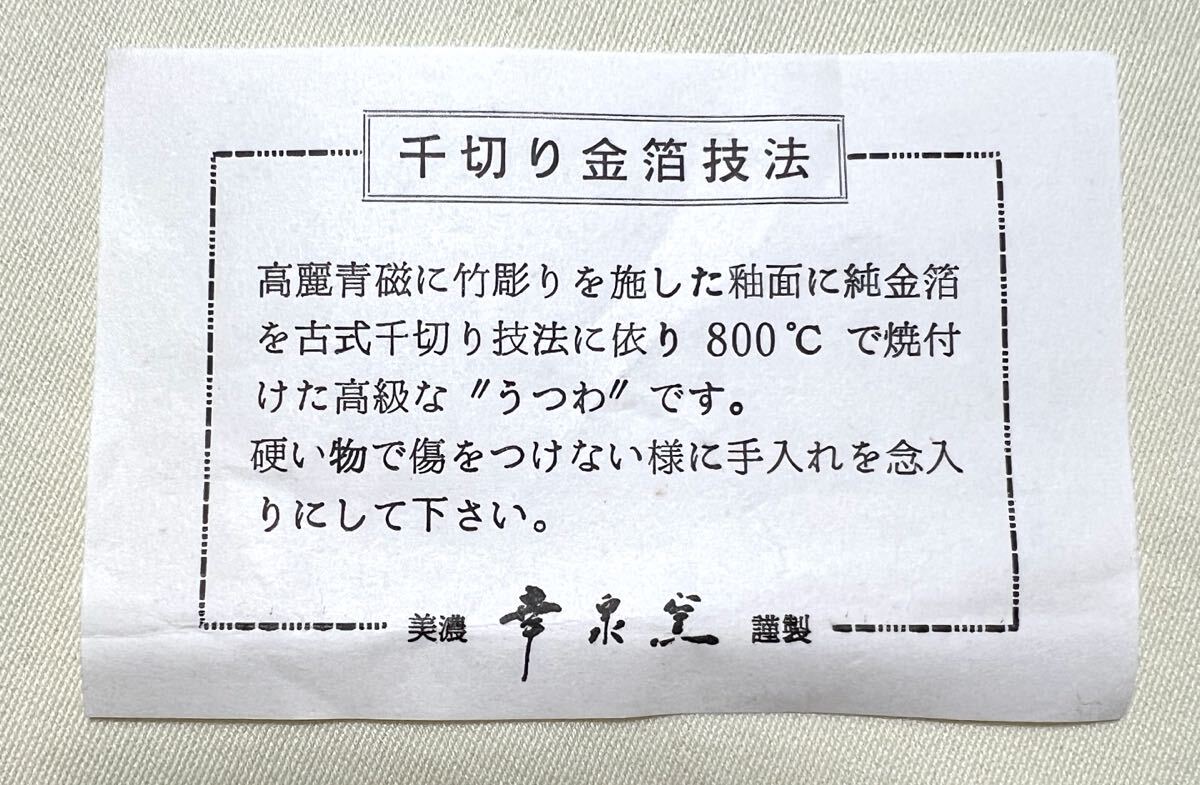 千切り金箔技法
高麗青磁に竹彫りを施した釉面に純金箔
を古式千切り技法に依り 800℃ で焼付
けた高級な〝うつわ〟です。
硬い物で傷をつけない様に手入れを念入
りにして下さい。
美濃 幸泉窯 謹製